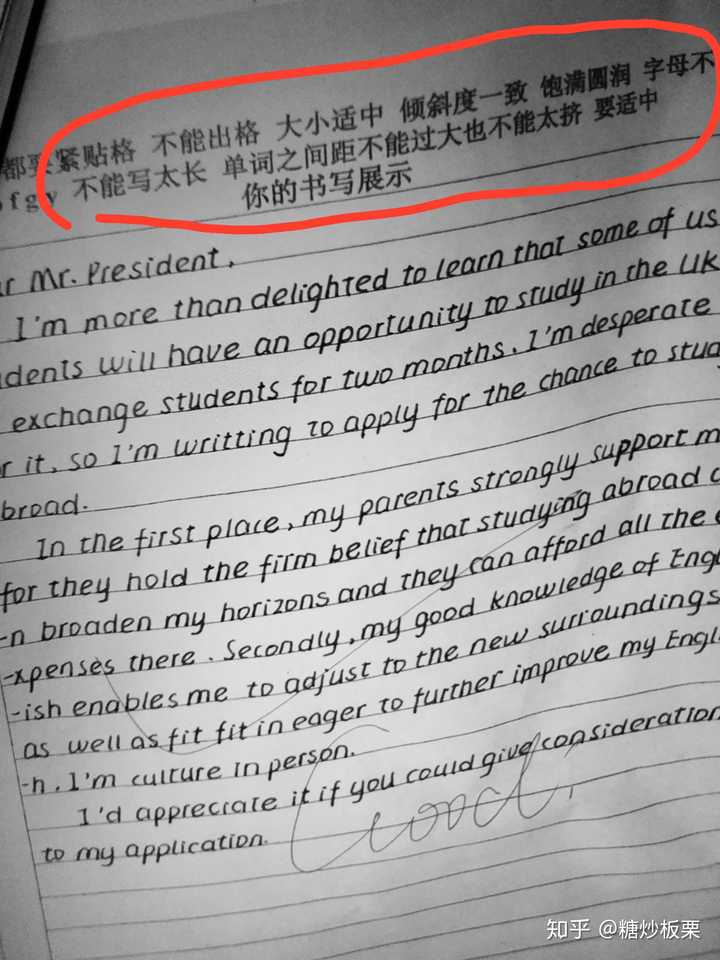 都要紧贴格 不能出格 大小适中 倾斜度一致 饱满圆润 字母不
f g y 不能写太长 单词之间距不能过大也不能太挤 要适中
你的书写展示
r Mr. President,
I'm more than delighted to learn that some of us
dents will have an opportunity to study in the UK
exchange students for two months. I'm desperate
r it, so I'm writting to apply for the chance to stud
broad.
In the first place, my parents strongly support m
for they hold the firm belief that studying abroad c
-n broaden my horizons and they can afford all the e
-xpenses there. Secondly, my good knowledge of Eng
-ish enables me to adjust to the new surroundings
as well as fit fit in eager to further improve my Engl
-h. I'm culture in person.
I'd appreciate it if you could give consideration
to my application.
Good!
知乎 @糖炒板栗